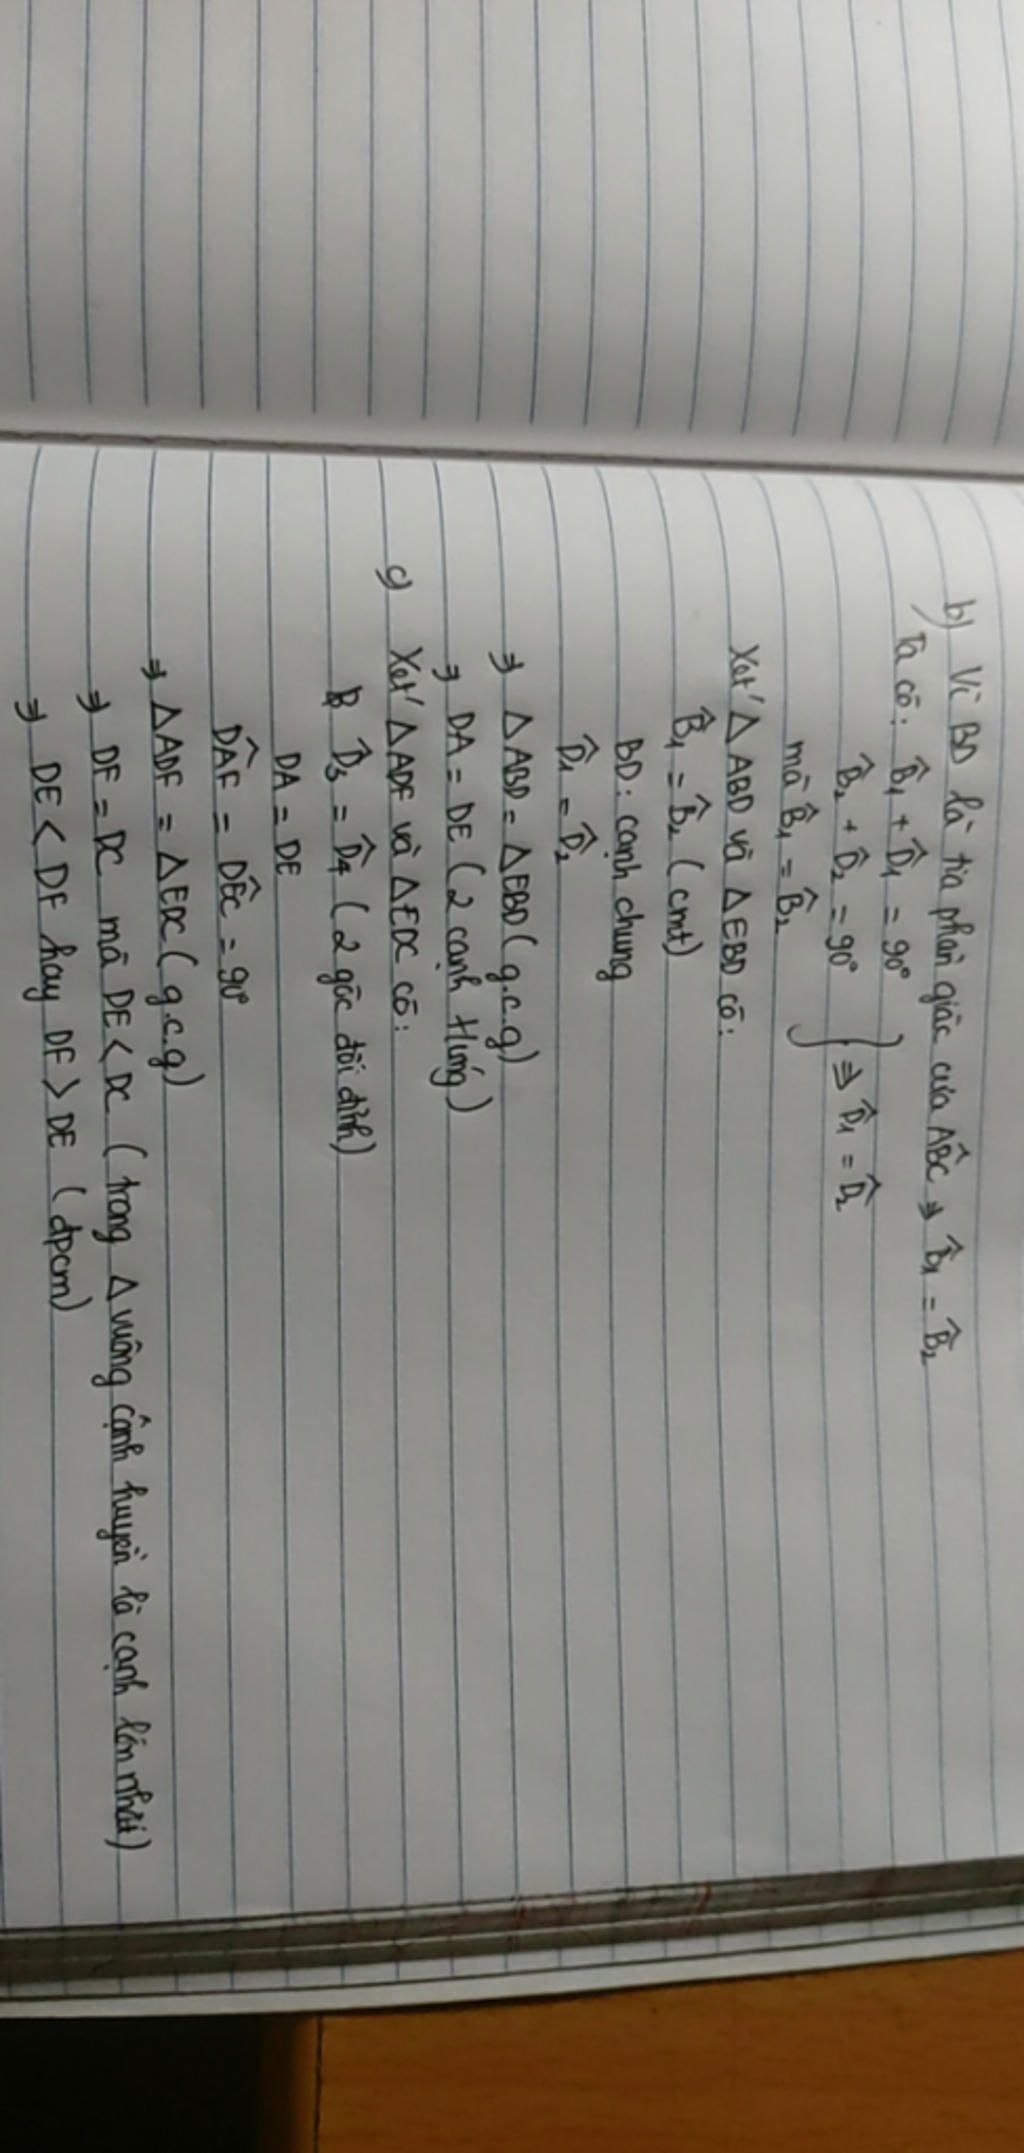 b) Vì BD là tia phân giác của ABĈ ⇒ B̂₁ = B̂₂
Ta có: B̂₁ + D̂₁ = 90°
B̂₂ + D̂₂ = 90° } ⇒ D̂₁ = D̂₂
mà B̂₁ = B̂₂
Xét Δ ABD và Δ EBD có:
B̂₁ = B̂₂ (cmt)
BD: cạnh chung
D̂₁ = D̂₂
⇒ Δ ABD = Δ EBD (g.c.g)
⇒ DA = DE (2 cạnh tứng)
c) Xét Δ ADF và Δ EDC có:
D̂₃ = D̂₄ (2 góc đối đỉnh)
DA = DE
DÂF = DÊC = 90°
⇒ Δ ADF = Δ EDC (g.c.g)
⇒ DF = DC mà DE < DC (trong Δ vuông cạnh huyền là cạnh lớn nhất)
⇒ DE < DF hay DF > DE (đpcm)